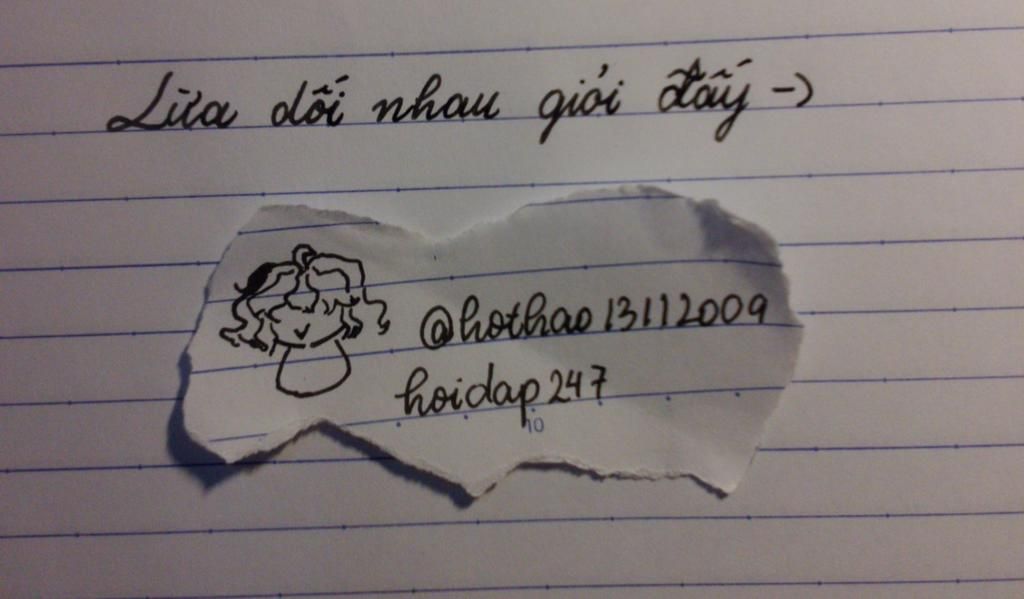 Lừa dối nhau giỏi đấy ->
@hothao13112009
hoidap247
10